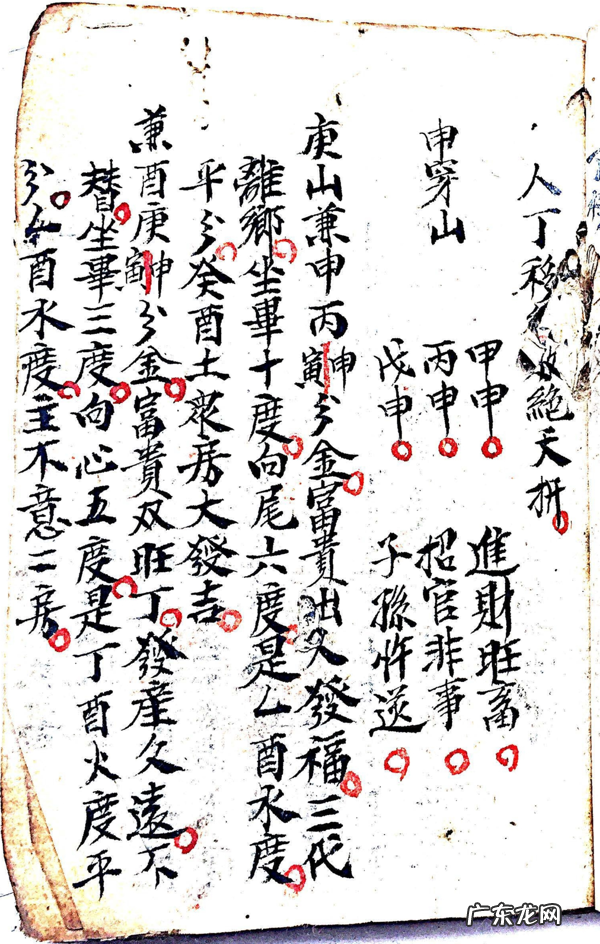 人丁移絶夭折
甲申 進財旺畜
申穿山 丙申 招官非事
戊申 子孫忤逆
庚山兼申丙申寅分金富貴出久發福三代
離鄉坐畢十度向尾六度是乙酉水度
平分癸酉土衆房大發吉
兼酉庚申寅分金富貴双旺丁發産久遠不
替坐畢三度向心五度是丁酉火度平
分辛酉水度主不意二房
广东龙网